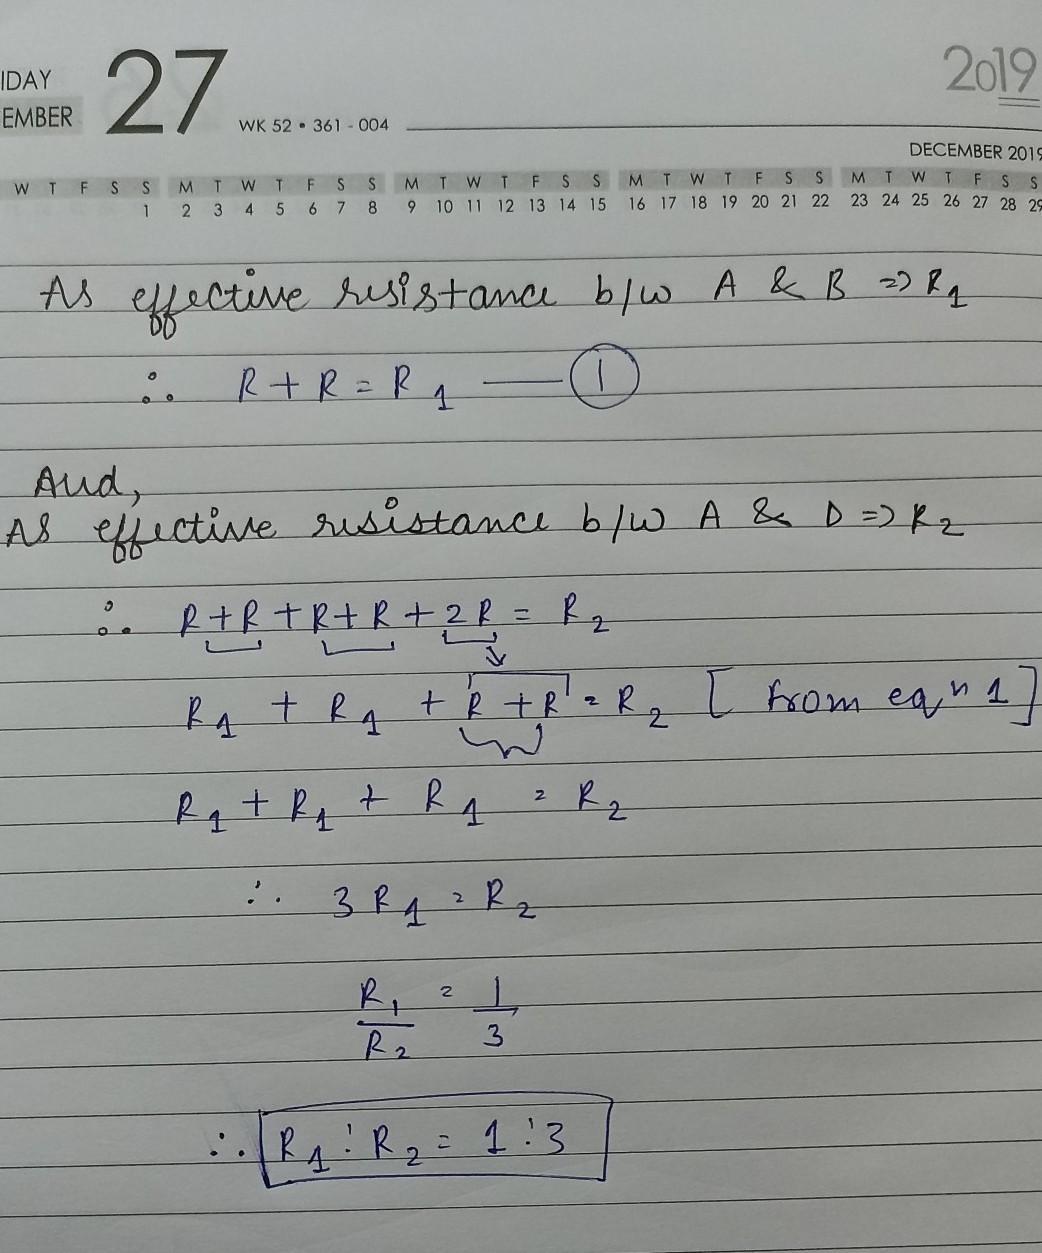 IDAY
EMBER
27
WK 52 • 361 - 004
2019
DECEMBER 2019
W T F S S M T W T F S S M T W T F S S M T W T F S S M T W T F S S
1 2 3 4 5 6 7 8 9 10 11 12 13 14 15 16 17 18 19 20 21 22 23 24 25 26 27 28 29
As effective resistance b/w A & B => R1
∴ R + R = R1 — 1
And,
As effective resistance b/w A & D => R2
∴ R + R + R + R + 2R = R2
R1 + R1 + R + R = R2 [ from eqn 1 ]
R1 + R1 + R1 = R2
∴ 3 R1 = R2
R1/R2 = 1/3
∴ R1 : R2 = 1 : 3